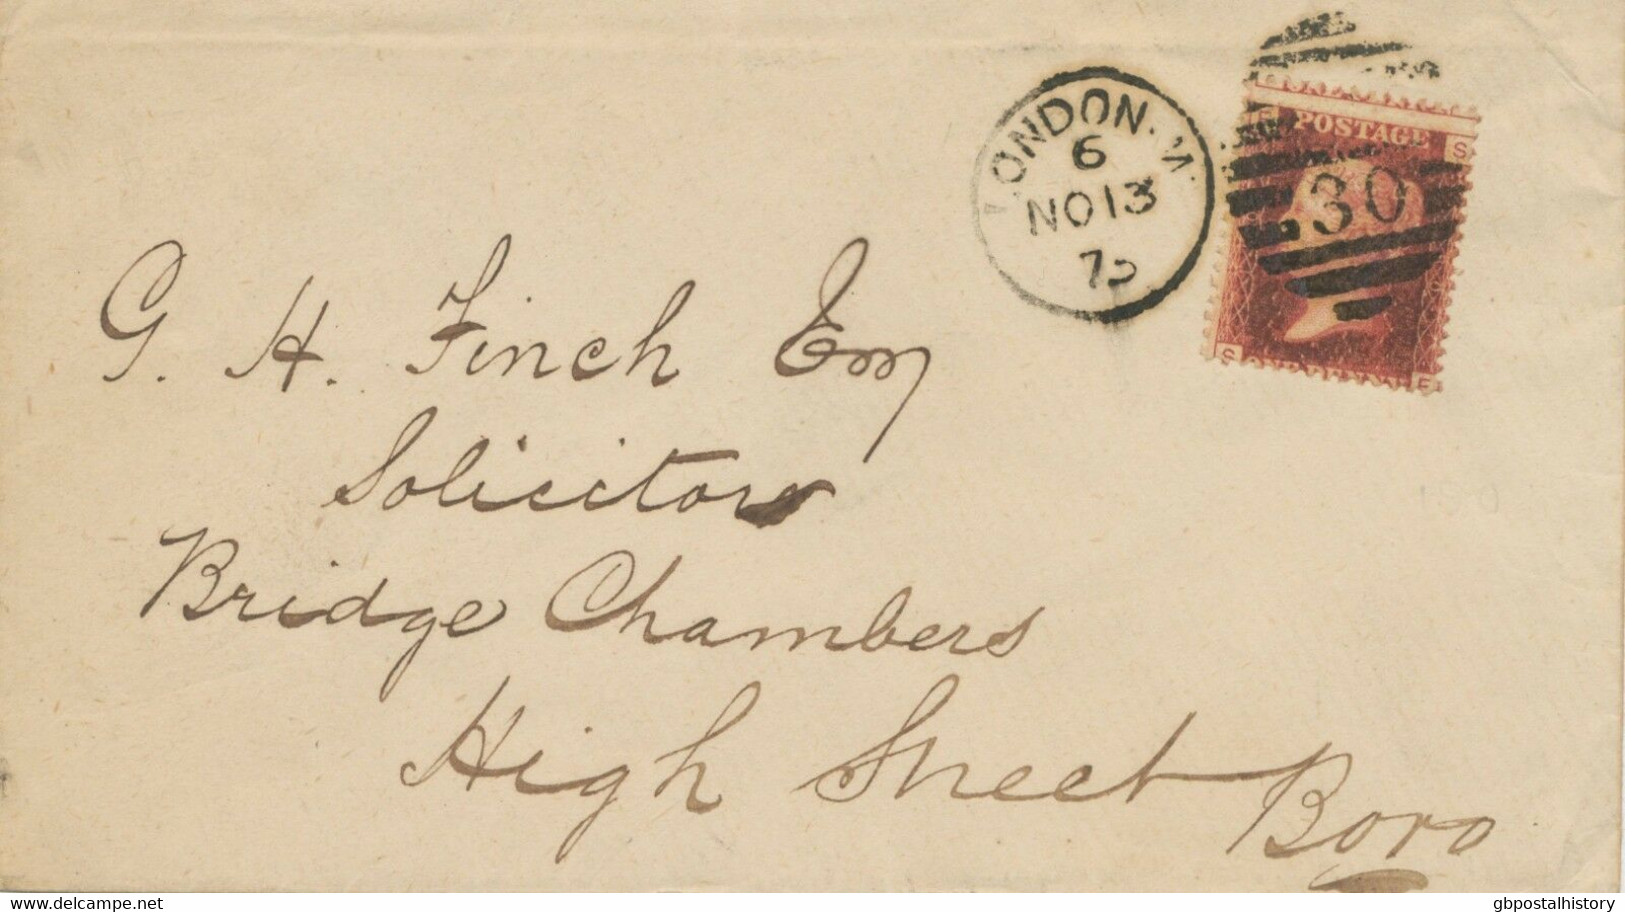 LONDON. W.
6
NO 13
75
POSTAGE
S
30
S
E
ONE PENNY
G. H. Finch Esq
Solicitor
Bridge Chambers
High Street Boro
delcampe.net
gbpostalhistory